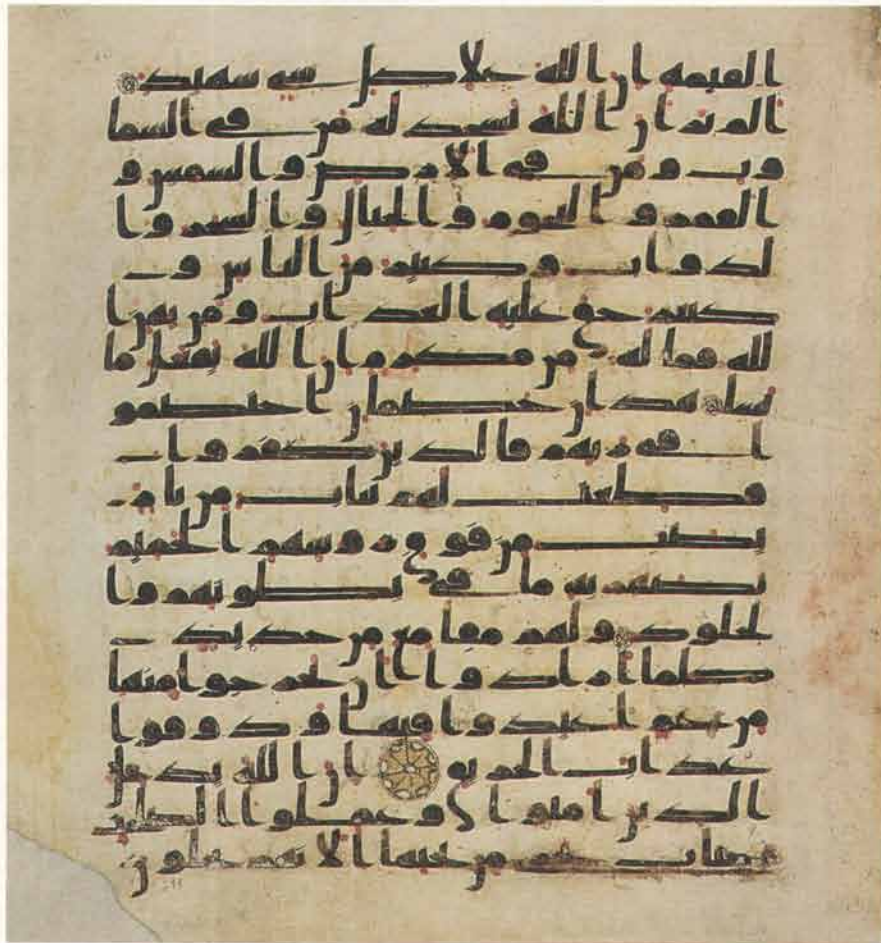 القيمه ان الله علا كل شي شهيد
الم تر ان الله يسجد له من في السما
وت ومن في الارض والشمس و
القمر والنجوم والجبال والشجر وا
لدواب وكثير من الناس و
كثير حق عليه العذاب ومن يهن ا
لله فما له من مكرم ان الله يفعل ما
يشا هذان خصمان اختصمو
ا في ربهم فالذين كفروا
قطعت لهم ثياب من نار
يصب من فوق روسهم الحميم
يصهر به ما في بطونهم وا
لجلود ولهم مقامع من حديد
كلما ارادوا ان يخرجوا منها
من غم اعيدوا فيها وذوقوا
عذاب الحريق ان الله يدخل
الذين امنوا وعملوا الصلحت
جنات تجري من تحتها الانهر يحلون